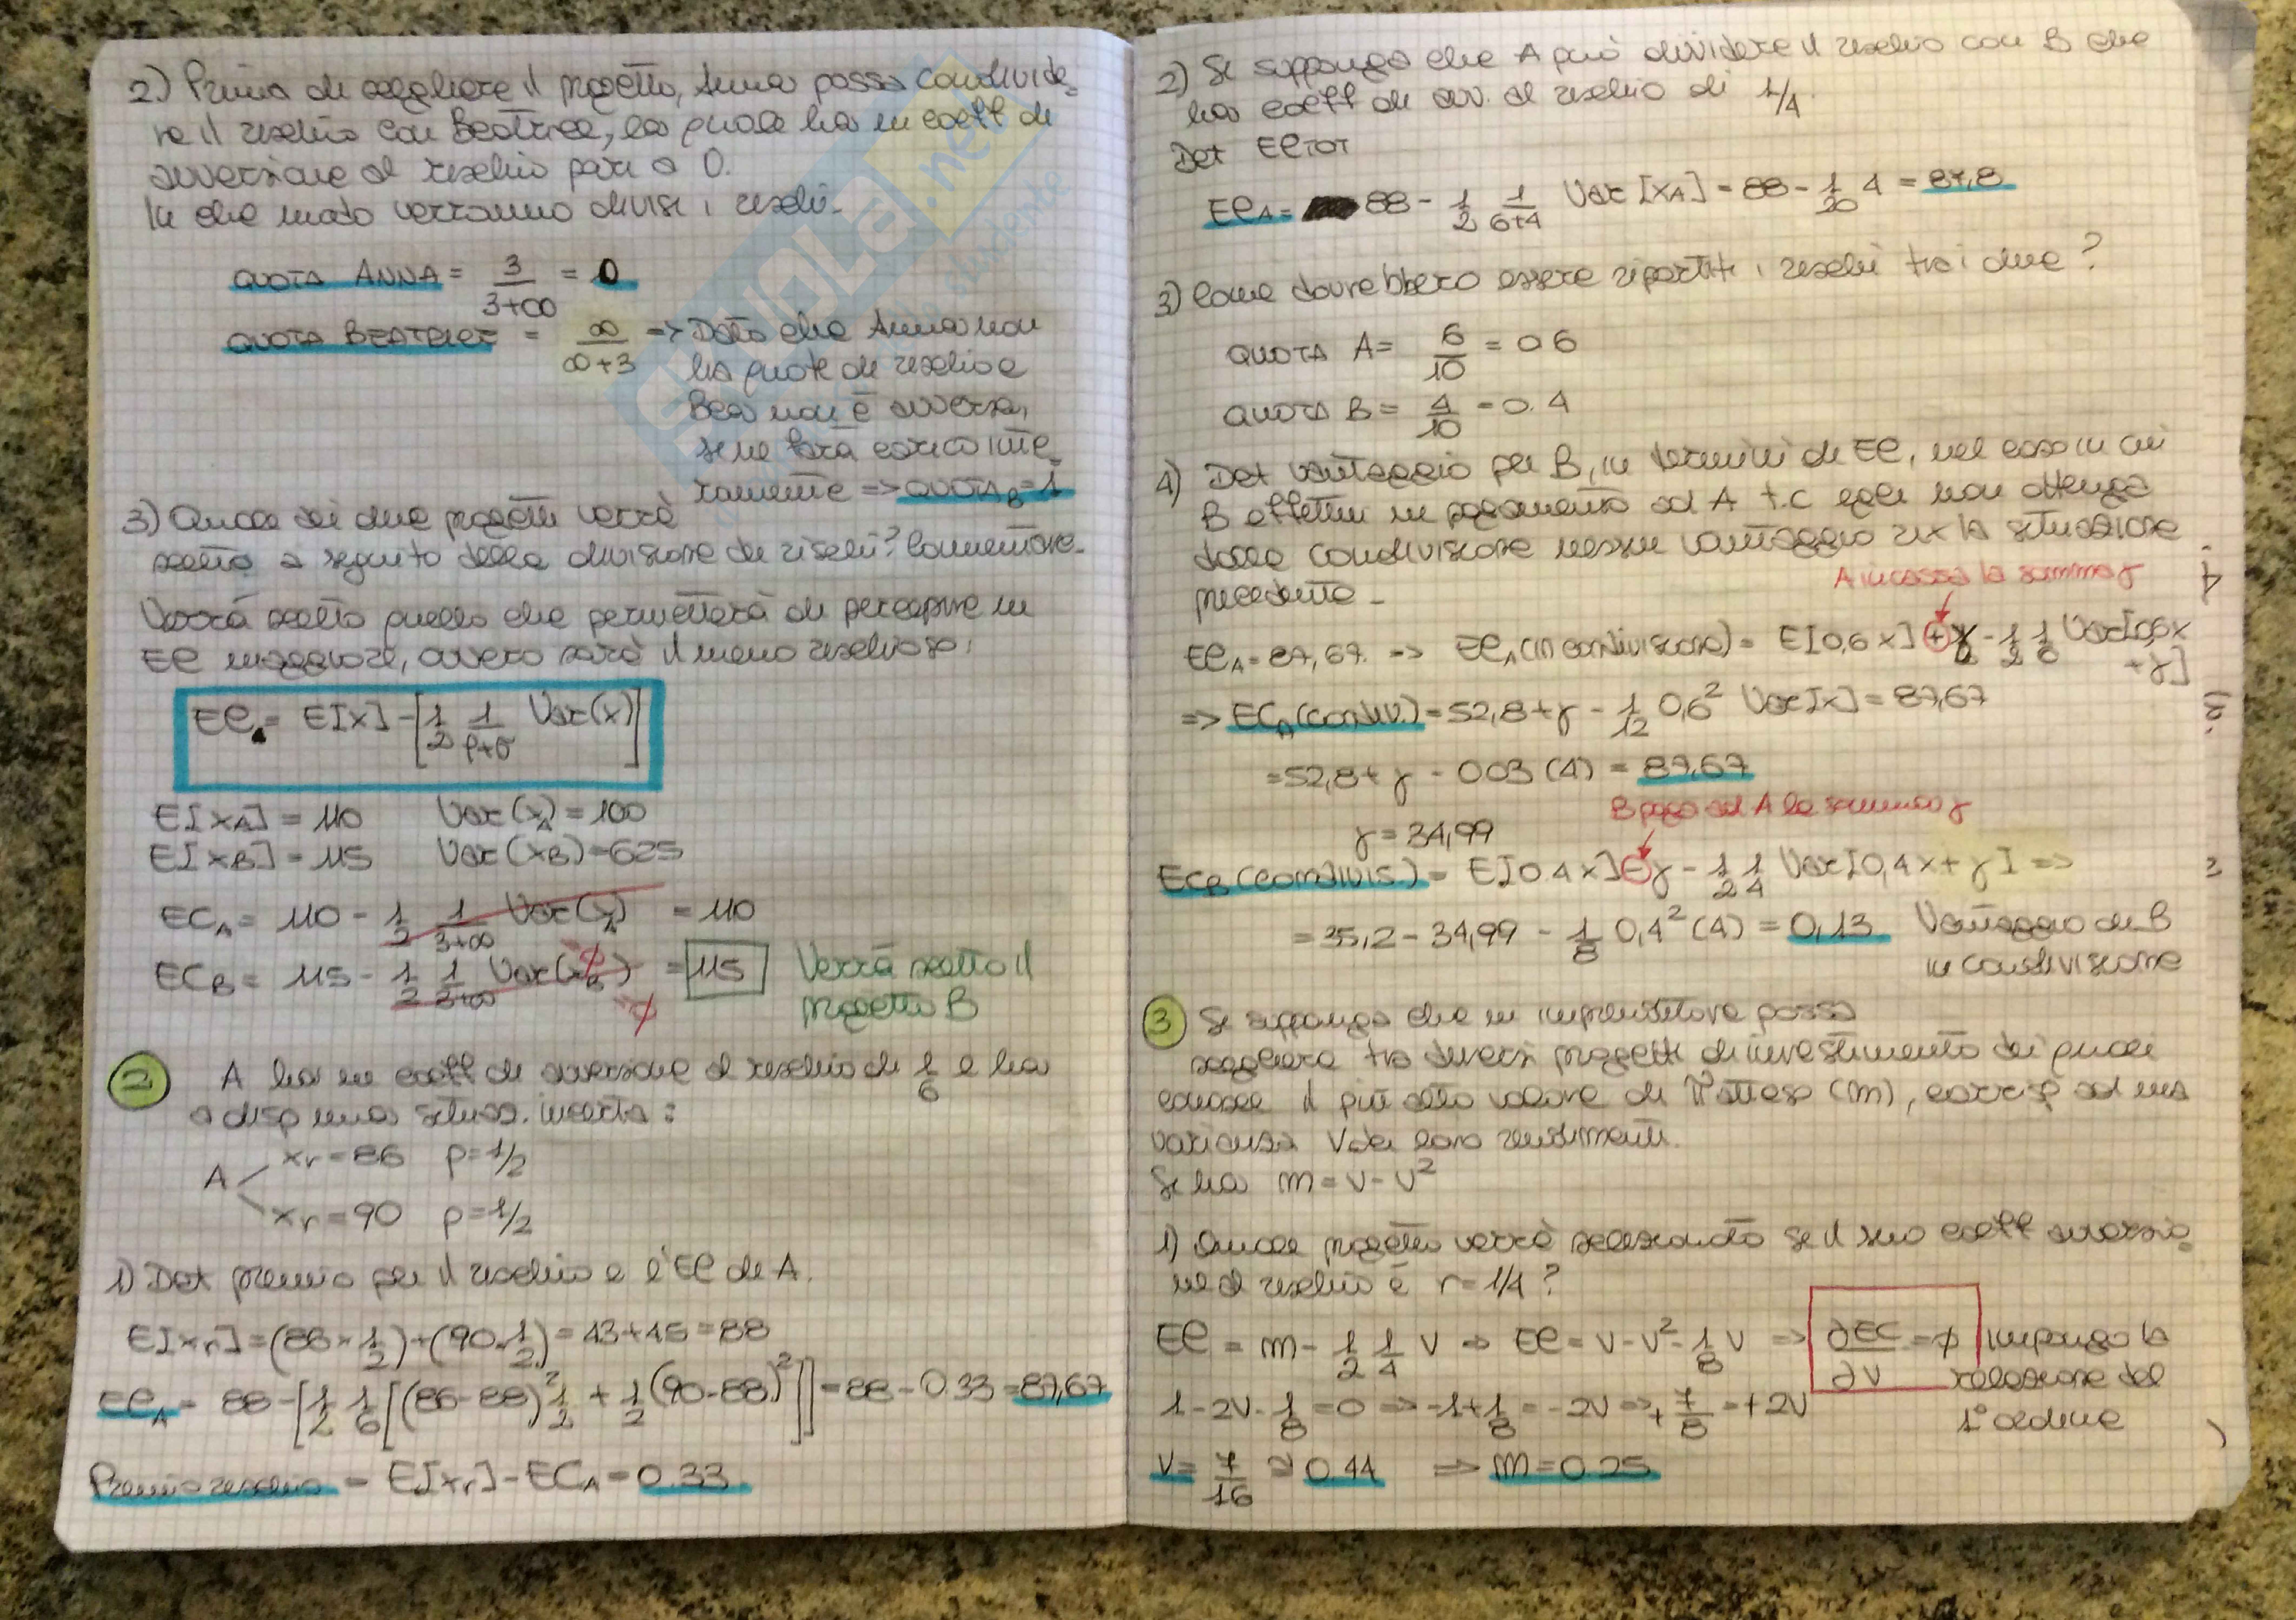 2) Prima di scegliere il progetto, Anna possa condivide-
re il rischio con Beatrice, la quale ha un coeff di
avversione al rischio pari a 0.
In che modo verranno divisi i rischi.
QUOTA ANNA = 3/(3+∞) = 0
QUOTA BEATRICE = ∞/(∞+3) => Dato che Anna non
ha quote di rischio e
Bea non è avversa,
se ne farà carico inte-
ramente => QUOTA_B = 1
3) Quale dei due progetti verrà
scelto a seguito della divisione dei rischi? Commentare.
Verrà scelto quello che permetterà di percepire un
EC maggiore, ovvero sarà il meno rischioso:
EC = E[X] - [1/2 1/(ρ+σ) Var(x)]
E[XA] = 110 Var(xA) = 100
E[XB] = 115 Var(XB) = 625
ECA = 110 - 1/2 1/(3+∞) Var(xA) = 110
ECB = 115 - 1/2 1/(3+∞) Var(xB) = 115 Verrà scelto il
progetto B
2 A ha un coeff di avversione al rischio di 1/6 e ha
a disp una situaz. incerta:
A xr = 86 p = 1/2
xr = 90 p = 1/2
1) Det premio per il rischio e l'EC di A.
E[xr] = (86 × 1/2) + (90 · 1/2) = 43 + 45 = 88
ECA = 88 - [1/2 1/6 [(86-88)² 1/2 + 1/2 (90-88)²]] = 88 - 0.33 = 87,67
Premio rischio = E[xr] - ECA = 0.33
2) Si supponga che A può dividere il rischio con B che
ha coeff di avv. al rischio di 1/4.
Det ECTOT
ECA = 88 - 1/2 1/(6+4) Var[XA] = 88 - 1/20 4 = 87,8
3) Come dovrebbero essere ripartiti i rischi tra i due?
QUOTA A = 6/10 = 0.6
QUOTA B = 4/10 = 0.4
4) Det vantaggio per B, in termini di EC, nel caso in cui
B effettui un pagamento ad A t.c egli non ottenga
dalla condivisione nessun vantaggio rix la situazione
precedente.
A incassa la somma γ
ECA = 87,67. => ECA (in condivisione) = E[0,6 x] + γ - 1/2 1/6 Var[0,6x
+ γ]
=> ECA (condiv.) = 52,8 + γ - 1/12 0,6² Var[X] = 87,67
= 52,8 + γ - 0.03 (4) = 87,67
B paga ad A la somma γ
γ = 34,99
ECB (condivis.) = E[0.4 x] - γ - 1/2 1/4 Var[0,4x + γ] =>
= 35,2 - 34,99 - 1/8 0,4² (4) = 0,13 Vantaggio di B
in condivisione
3 Si supponga che un imprenditore possa
scegliere tra diversi progetti di investimento dei quali
conosce il più alto valore di π atteso (m), corrisp ad una
varianza V dei loro rendimenti.
Si ha m = v - v²
1) Quale progetto verrà selezionato se il suo coeff avversio-
ne al rischio è r = 1/4?
EC = m - 1/2 1/4 v => EC = v - v² - 1/8 v => ∂EC/∂V = ϕ impongo la
relazione del
1° ordine
1 - 2v - 1/8 = 0 => -1 + 1/8 = -2v => + 7/8 = +2v
v = 7/16 ≅ 0.44 => m = 0.25